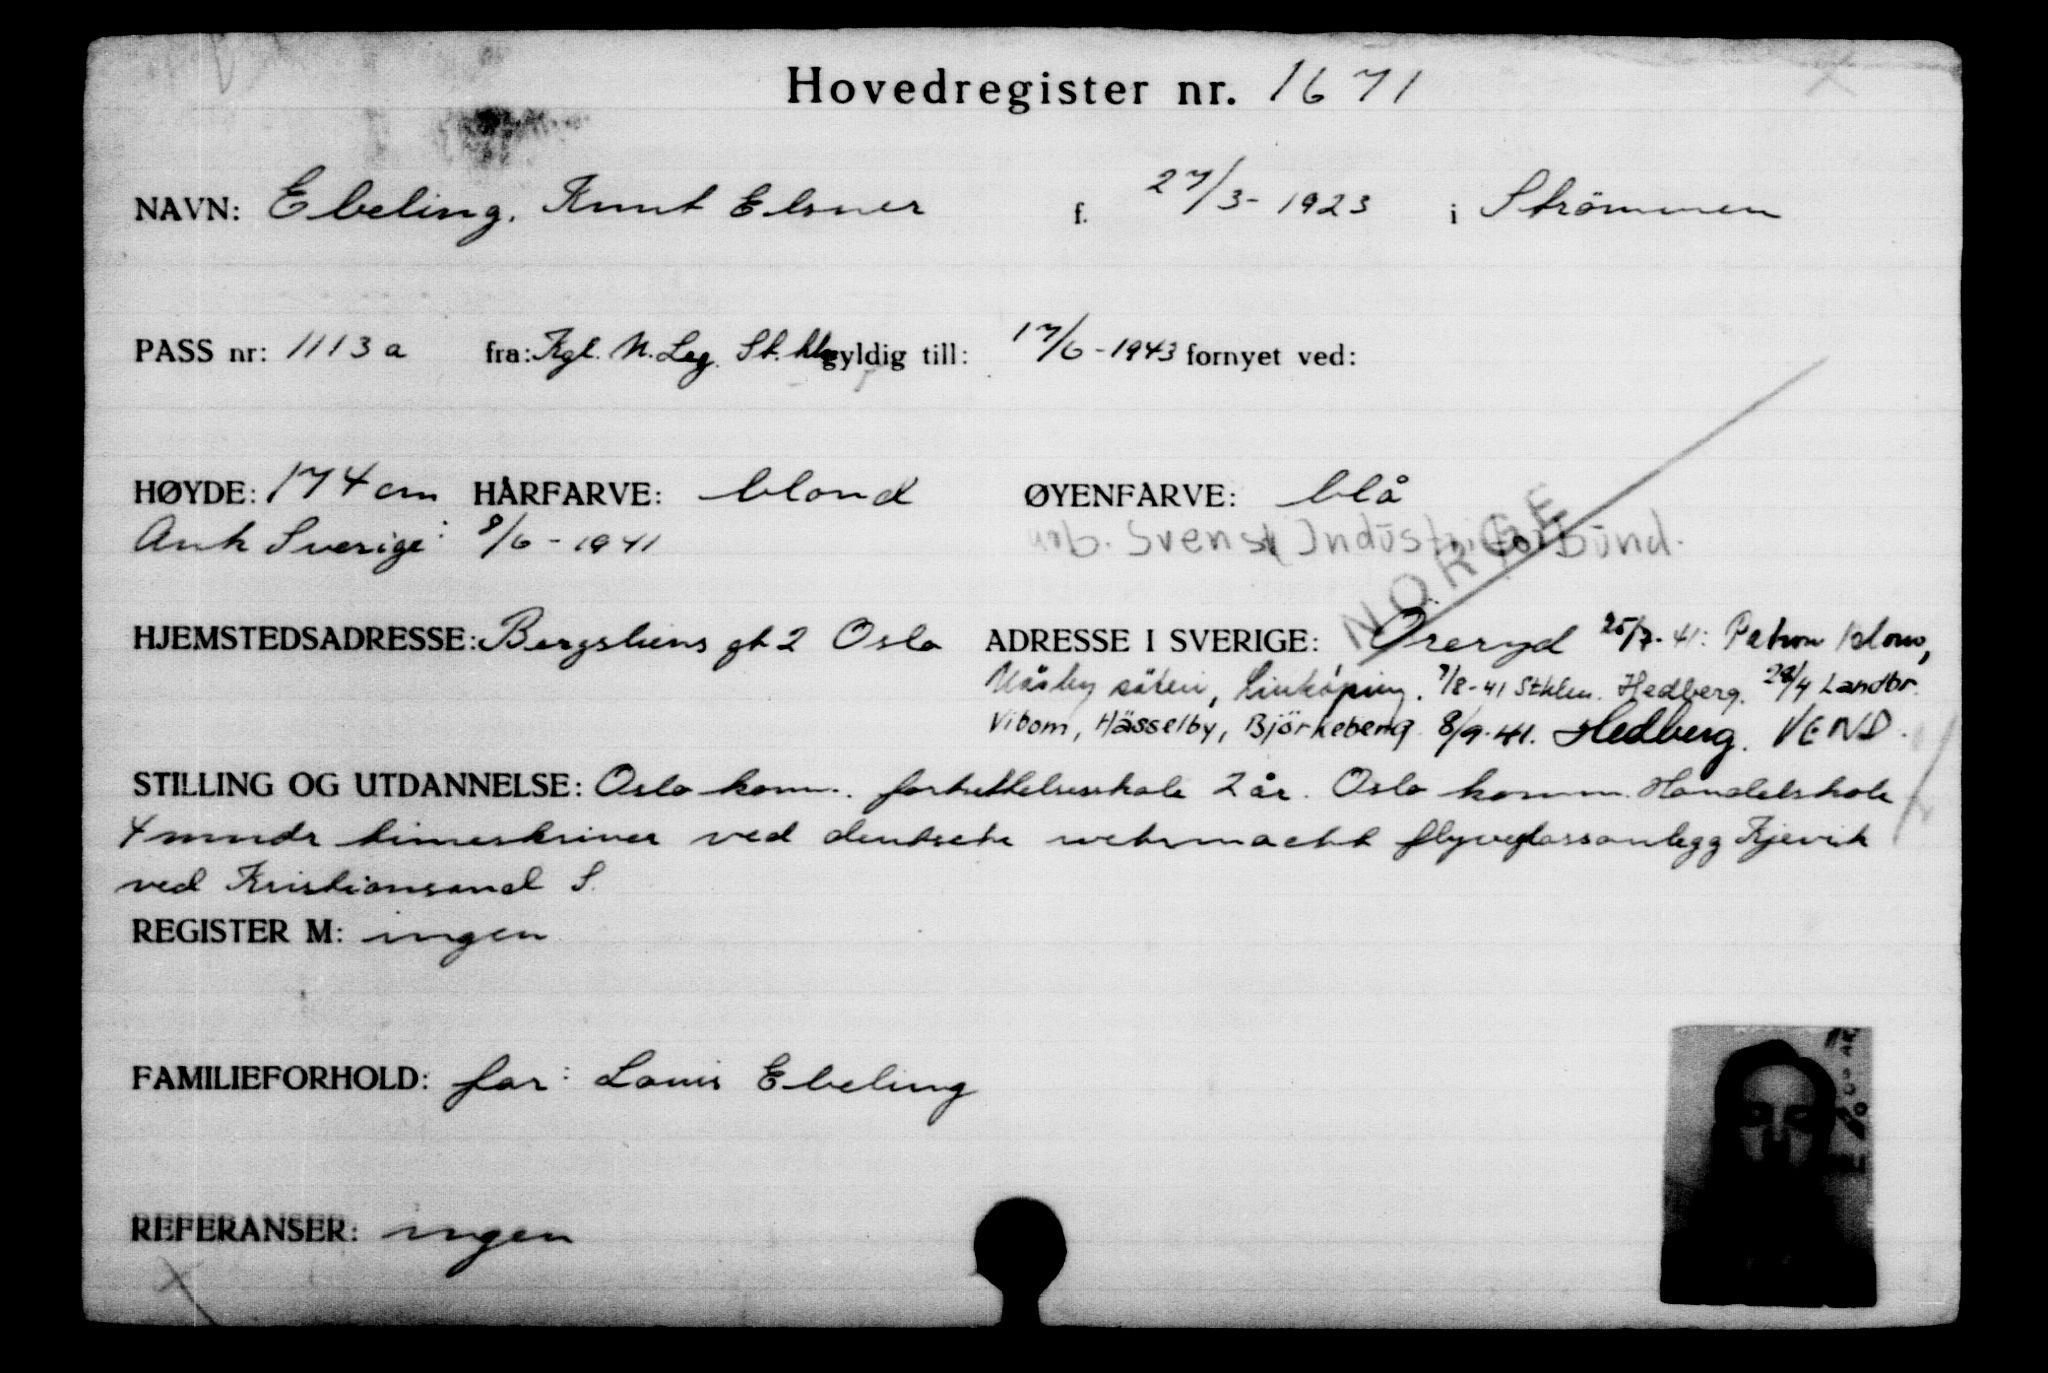 Hovedregister nr. 1671
NAVN: Ebeling, Knut Elsner f. 27/3-1923 i Strömmen
PASS nr: 1113a fra: Kgl. N. Leg. St.hlm gyldig till: 17/6-1943 fornyet ved:
HØYDE: 174 cm HÅRFARVE: blond ØYENFARVE: blå
Ank Sverige: 8/6-1941 arb. Svensk Industriforbund.
NORGE
HJEMSTEDSADRESSE: Bergsliens gt 2 Oslo ADRESSE I SVERIGE: Öreryd 25/7-41: Patron Blom,
säteri, Linköping. 7/8-41 Sthlm. Hedberg. 28/4 Landbr.
Vibom, Hässelby, Björkeberg 8/9-41. Hedberg. VEND.
STILLING OG UTDANNELSE: Oslo komm. fortsettelsesskole 2 år. Oslo komm. Handelskole
4 mndr timeskriver ved deutsche wehrmacht flyveplassanlegg Kjevik
ved Kristiansand S.
REGISTER M: ingen
FAMILIEFORHOLD: far: Louis Ebeling
REFERANSER: ingen